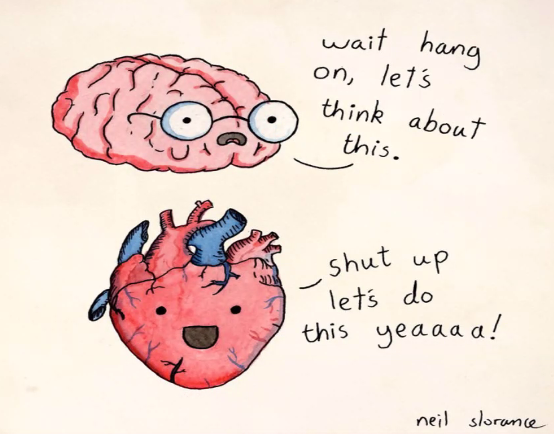 wait hang
on, let's
think about
this.
shut up
let's do
this yeaaaa!
neil slorance